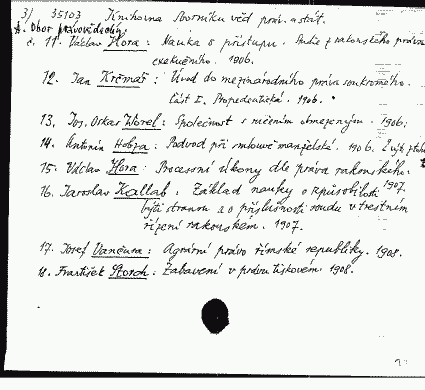 3/ 35103 Knihovna Sborníku věd práv. a stát.
A. Obor právovědecký.
č. 11. Václav Hora: Nauka o přístupu. Studie z rakouského práva
exekučního. 1906.
12. Jan Krčmář: Úvod do mezinárodního práva soukromého.
Část I. Propedeutická. 1906.
13. Jos. Oskar Worel: Společnost s ručením obmezeným. 1906.
14. Antonín Hobza: Podvod při smlouvě manželské. 1906.
15. Václav Hora: Procesní úkony dle práva rakouského.
1907.
16. Jaroslav Kallab: Základ nauky o způsobilosti
býti stranou a o příslušnosti soudu v trestním
řízení rakouském. 1907.
17. Josef Vančura: Agrární právo římské republiky. 1908.
18. František Storch: Zabavení v právu tiskovém. 1908.